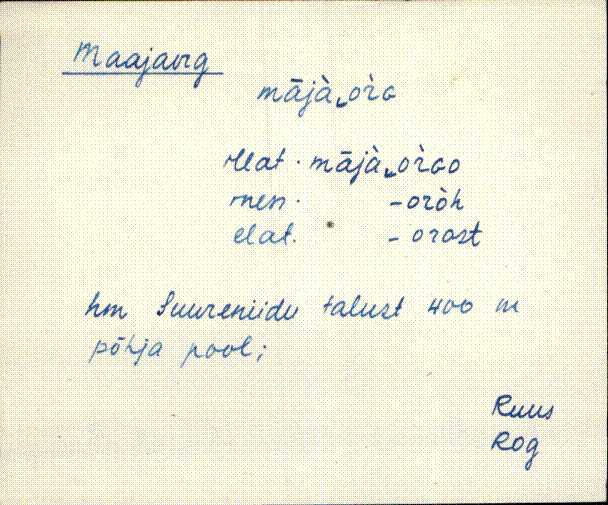 Maajaorg
mājà‿òrG
illat. mājà‿òrGo
ines. -oròh
elat. - orost
hm Suureniidu talust 400 m
põhja pool;
Ruus
Rõg